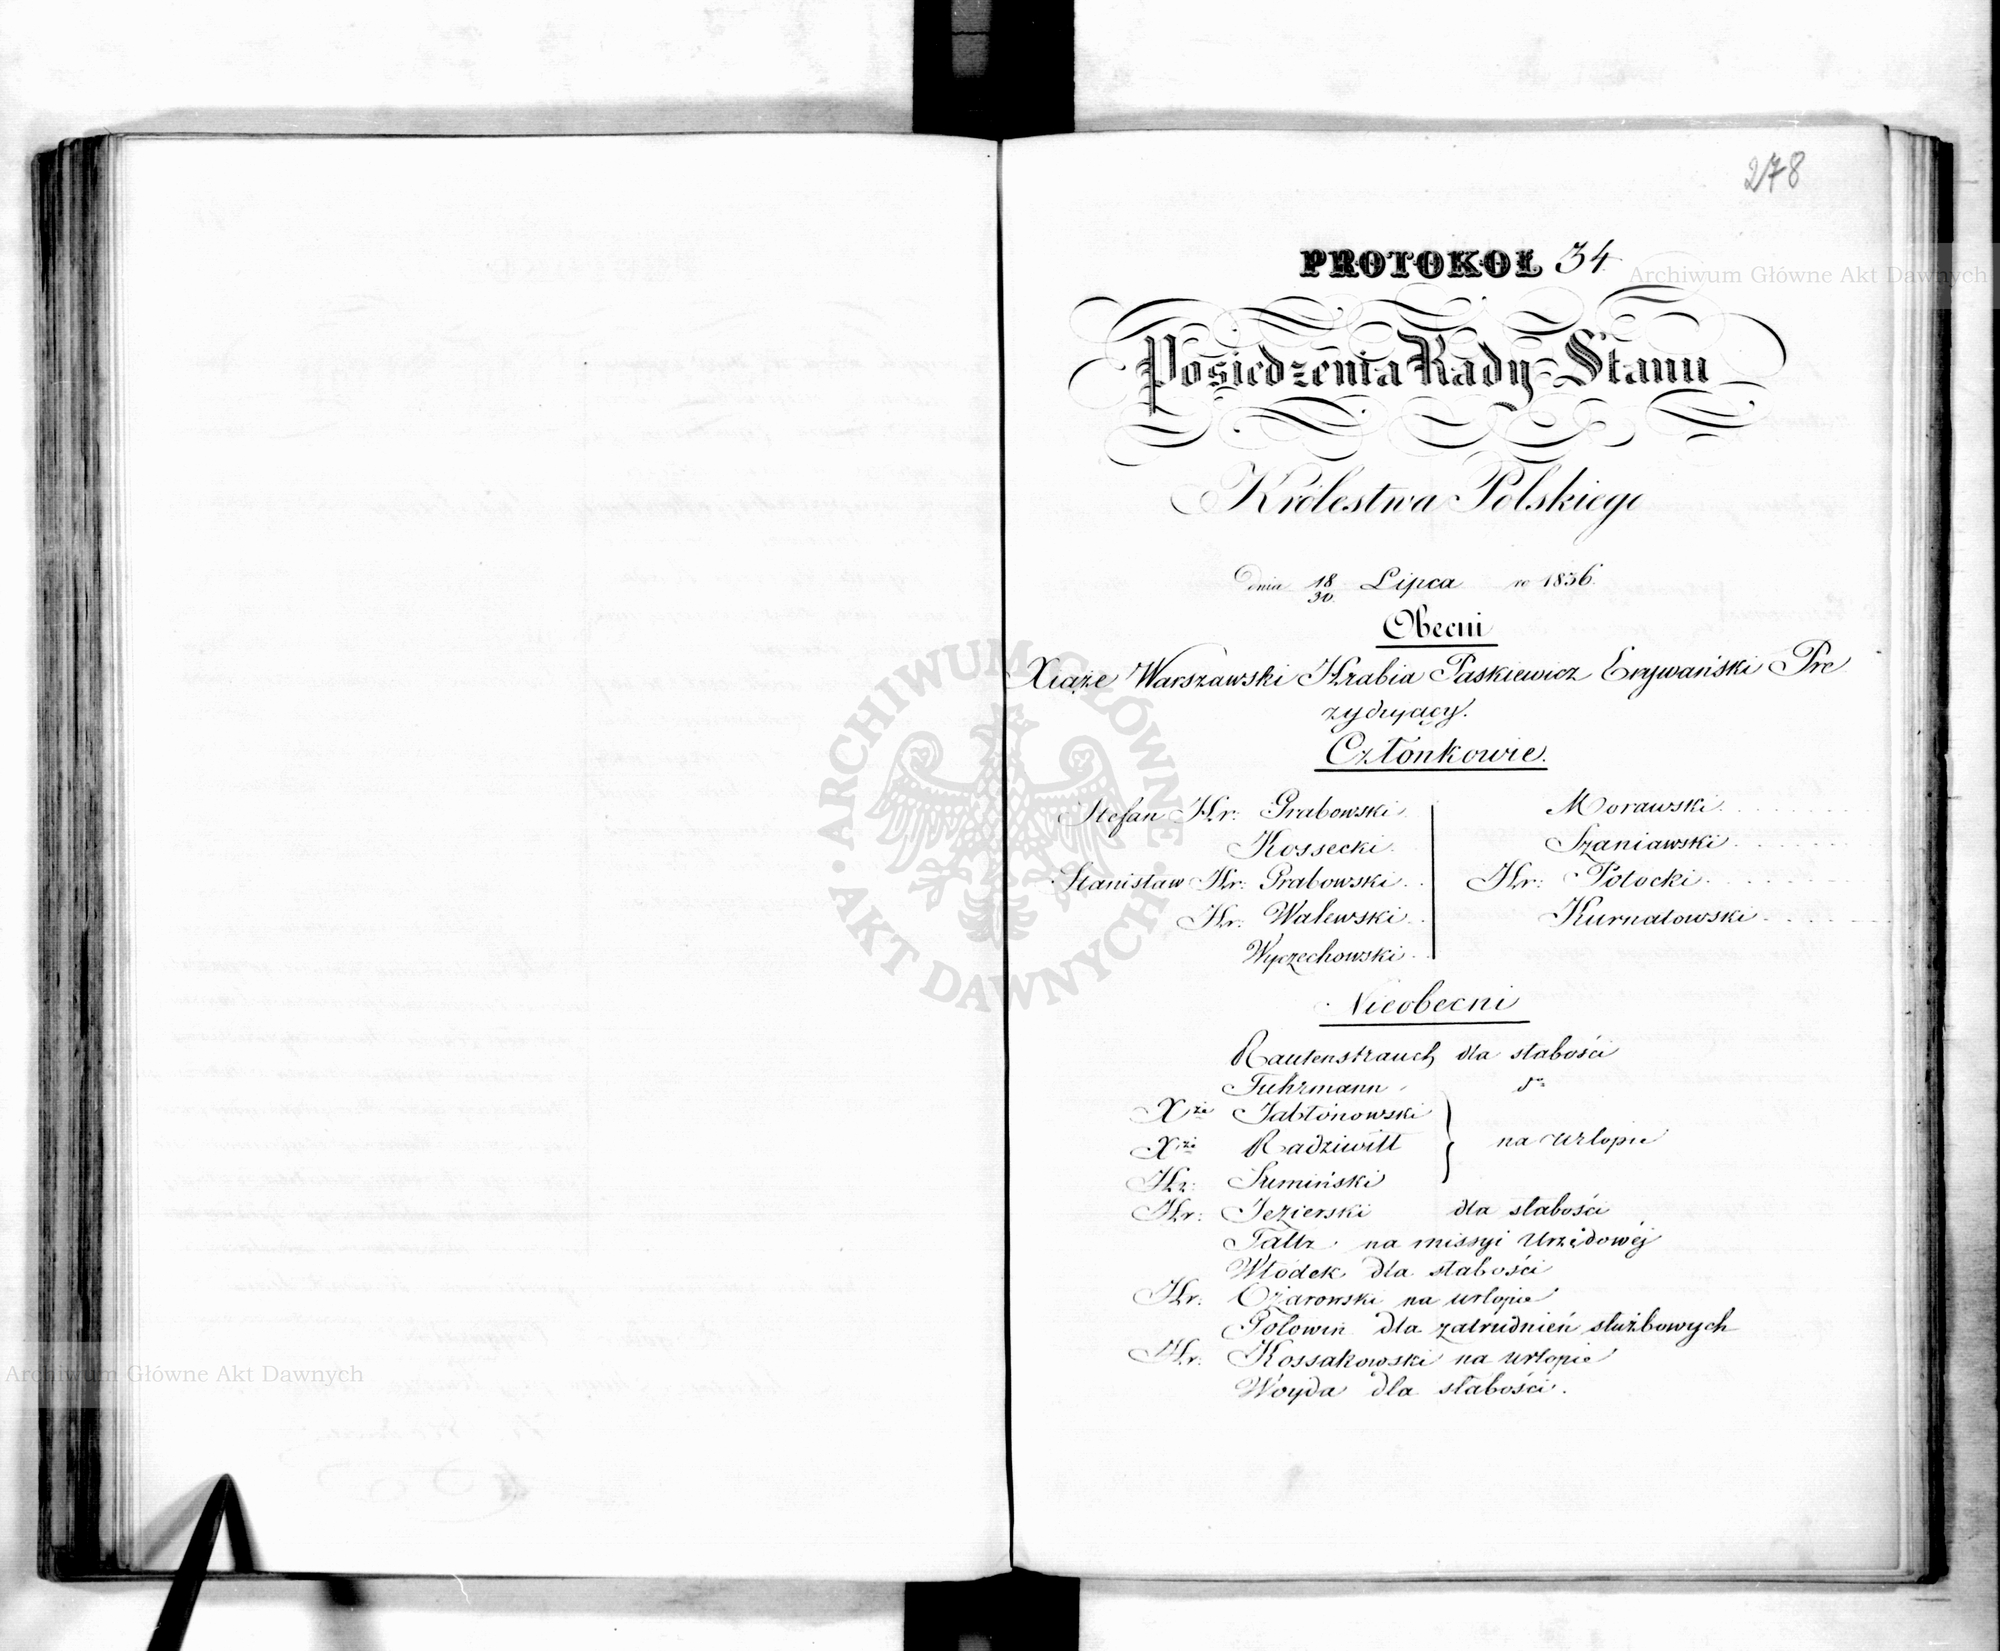 278
PROTOKOŁ 34.
Posiedzenia Rady Stanu
Królestwa Polskiego
Dnia 18/30 Lipca ro 1836.
Obecni
Xiąże Warszawski Hrabia Paskiewicz Erywański Pre
zydujący.
Członkowie.
Stefan Hr: Grabowski.
Kossecki.
Stanisław Hr: Grabowski.
Hr: Walewski.
Wyczechowski.
Morawski.
Szaniawski.
Hr: Potocki.
Kurnatowski.
Nieobecni
Rautenstrauch dla słabości
Fuhrmann do
Xże Jabłonowski
Xże Radziwiłł na urlopie
Hr: Sumiński
Hr: Jezierski dla słabości
Faltz na missyi urzędowéj
Włodek dla słabości
Hr: Ożarowski na urlopie
Gołowin dla zatrudnień służbowych
Hr: Kossakowski na urlopie
Woyda dla słabości.
Archiwum Główne Akt Dawnych
ARCHIWUM GŁÓWNE
AKT DAWNYCH
Archiwum Główne Akt Dawnych